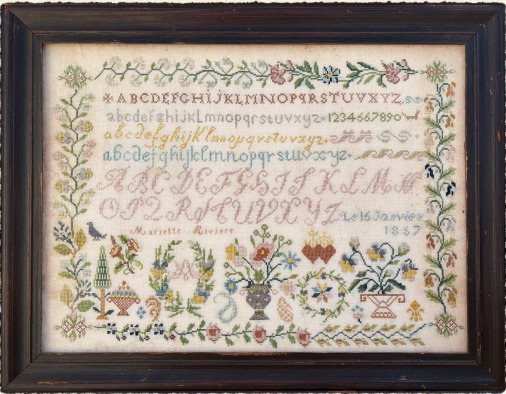 ABCDEFGHIJKLMNOPQRSTUVXYZ
abcdefghijklmnopqrstuvxyz 1234667890
abcdefghijklmnopqrstuvxyz
abcdefghijklmnopqrstuvxyz
ABCDEFGHIJKLMN
OPQRSTUVXYZ Le 16 Janvier
Mariette Riviere 1857
A